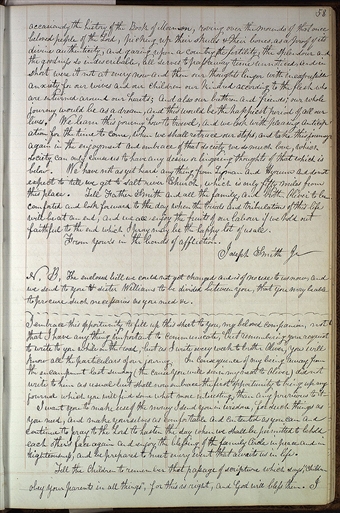 58
occasionally the history of the Book of Mormon, roving over the mounds of that once
beloved people of the Lord, picking up their skulls & their bones, as a proof of its
divine authenticity, and gazing upon a country the fertility, the splendour and
the goodness so indescribable, all serves to pass away time unnoticed, and in
short were it not at every now and then our thoughts linger with inexpressible
anxiety for our wives and our children our kindred according to the flesh who
are entwined around our hearts; And also our brethren and friends; our whole
journey would be as a dream, and this would be the happiest period of all our
lives. We learn this journey how to travel, and we look with pleasing anticip-
ation for the time to come, when we shall retrace our steps, and take this journey
again in the enjoyment and embrace of that society we so much love, which
society can only cause us to have any desire or lingering thoughts of that which is
below. We have not as yet heard any thing from Lyman and Hyrum and do not
expect to till we get to Salt river Church, which is only fifty miles from
this place. Tell Father Smith and all the family, and brother Oliver to be
comforted and look forward to the day when the trials and tribulations of this life
will be at an end, and we all enjoy the fruits of our labour if we hold out
faithful to the end which I pray may be the happy lot of us all.
From yours in the bonds of affliction.
Joseph Smith Jr
N. B. The enclosed bill we could not get changed and is of no use to us now, and
we send it to you & sister Williams to be divided between you, that you may be able
to procure such necessaries as you need &c.
I embrace this opportunity to fill up this sheet to you, my beloved companion, not
that I have any thing important to communicate, but remembering your request
to write to you while on the road, but as I write every week to brother Oliver, you will
know all the particulars of our journey. In consequence of my being away from
the encampment last sunday, (the cause you will see in my next to Oliver,) did not
write to him as usual but shall remembrance the first opportunity to bring up my
journal which you will find some what more interesting, than any previous to it.
I want you to make use of the money I send you in wisdom, for such things as
you need, and make yourself as comfortable and contented as you can and
continue to pray to the Lord to hasten the day when we shall be permitted to behold
each others face again and enjoy the blessings of the family Circle in peace and in
righteousness, and be prepared to meet every event that awaits us in life.
Tell the Children to remember that passage of scripture which says, "Children
obey your parents in all things", for this is right, and God will bless them. I